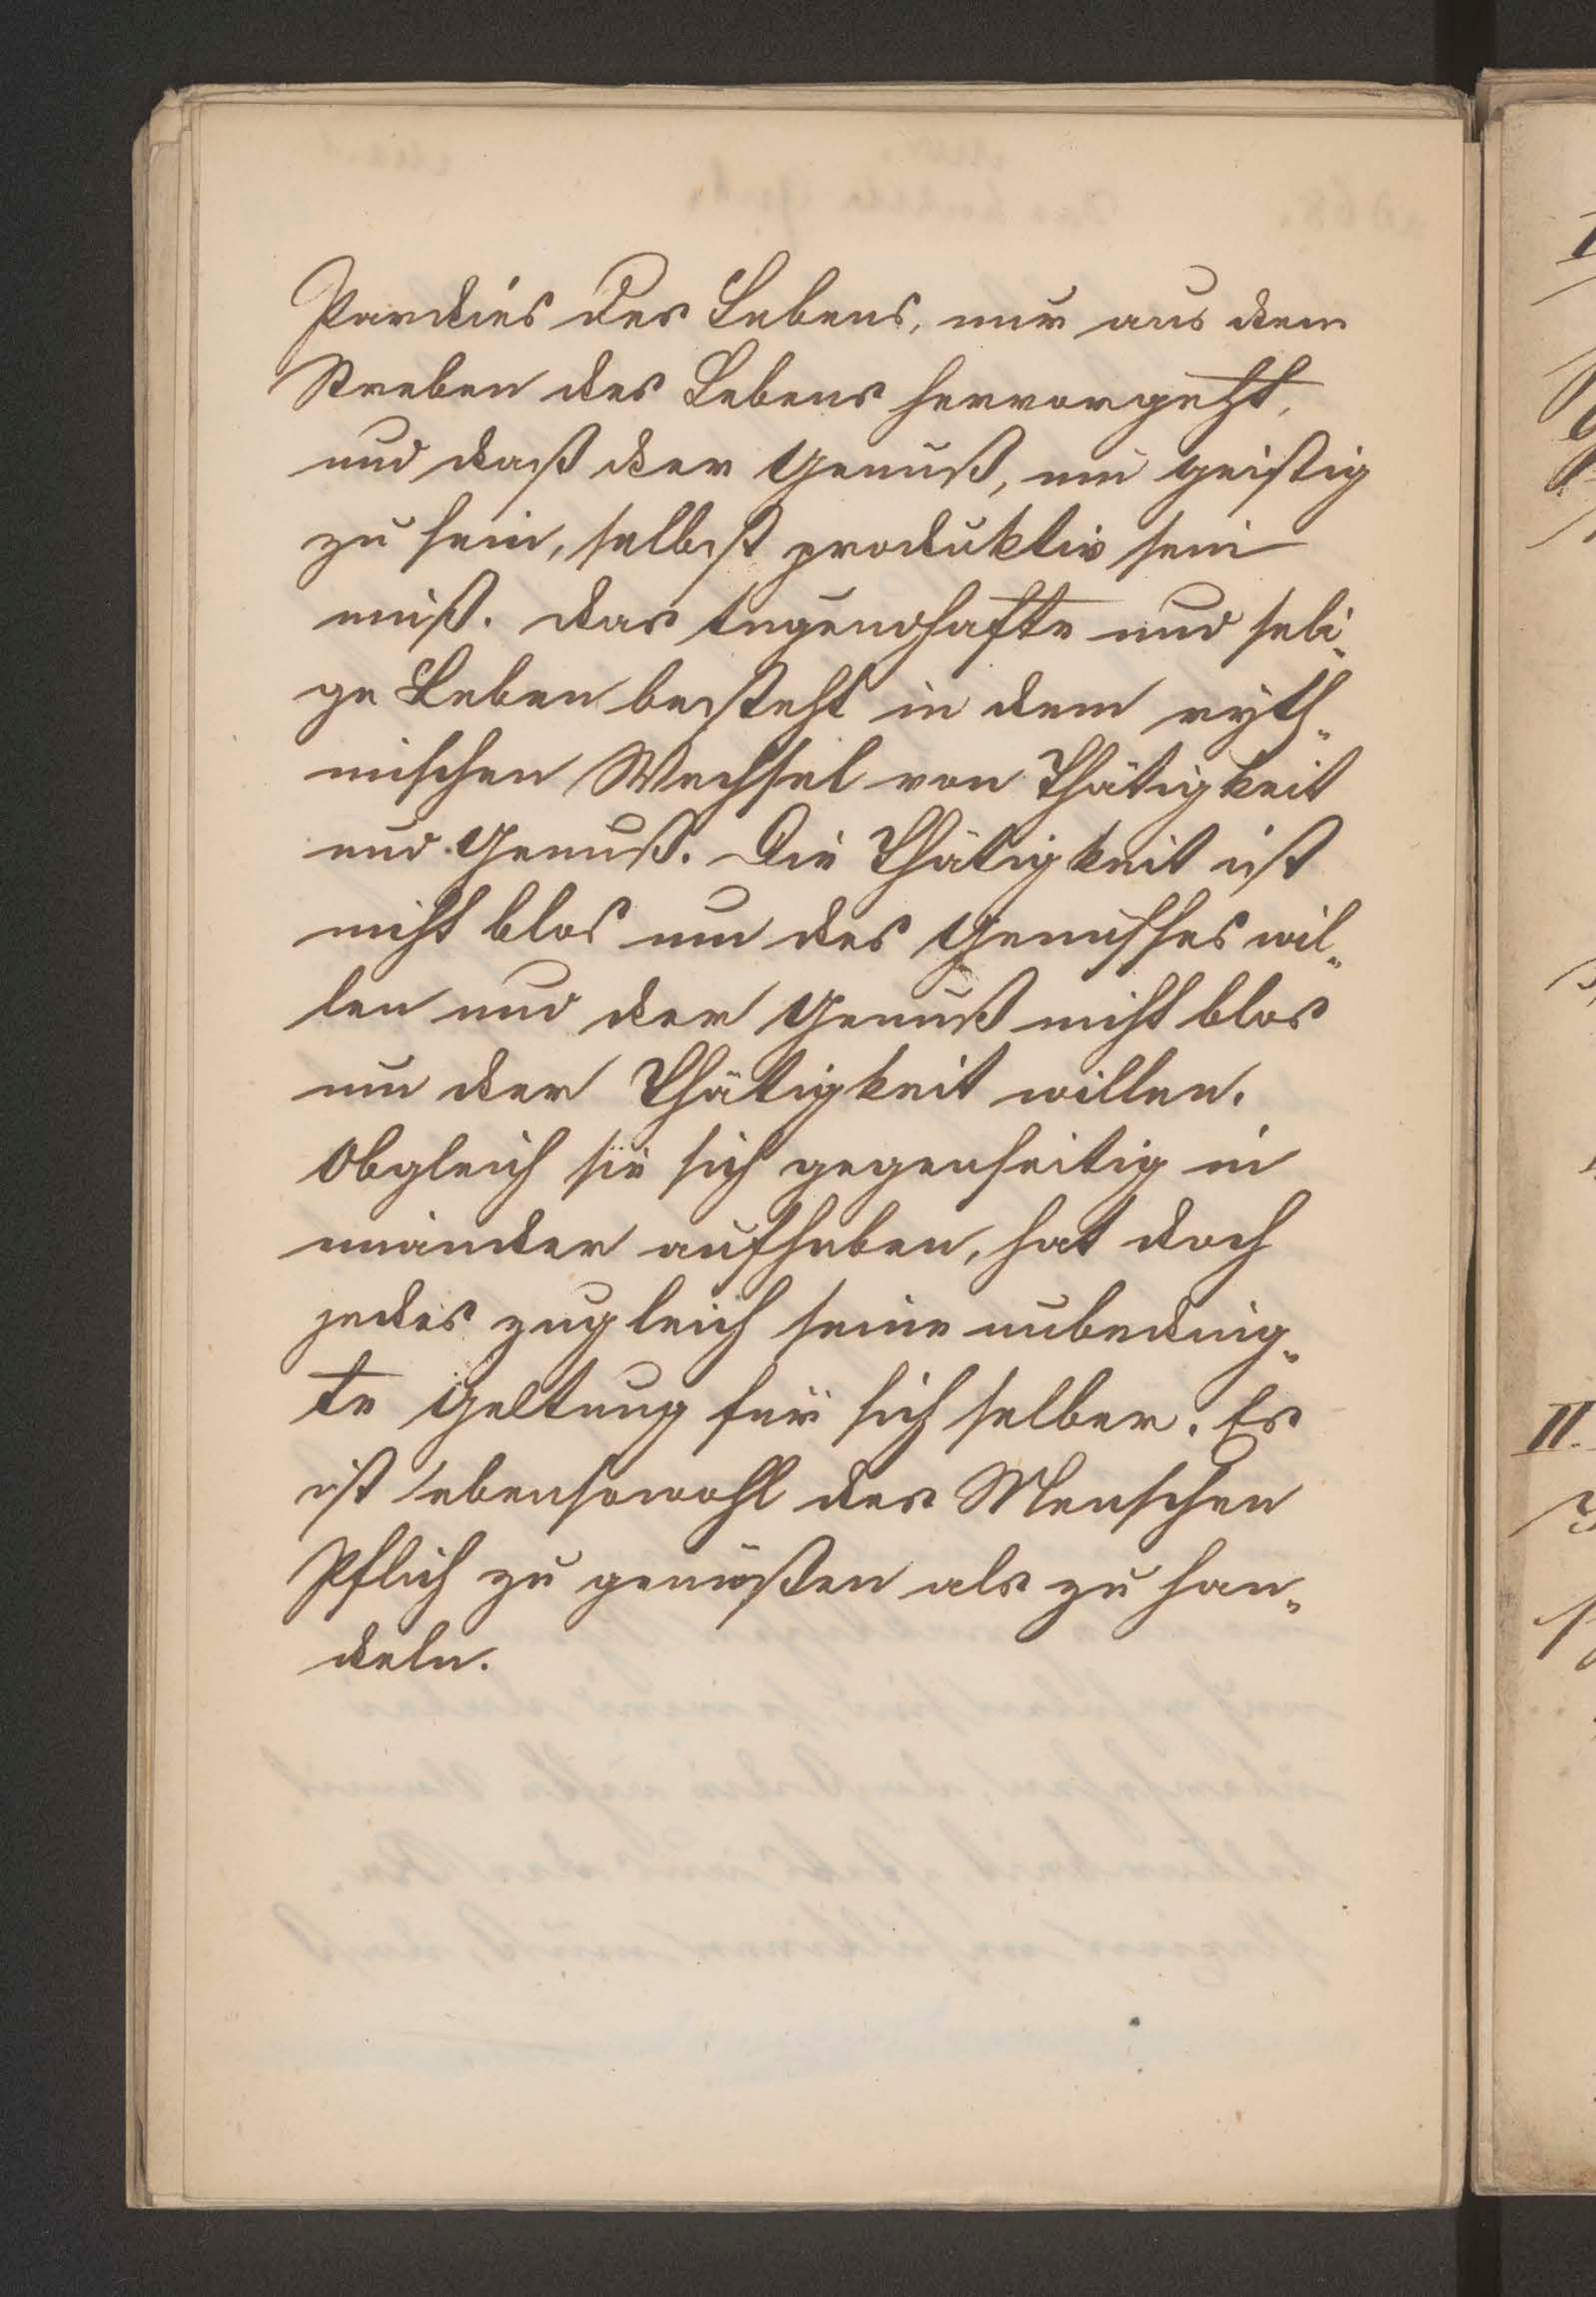 Pardies des Lebens, nur aus dem
Streben des Lebens hervorgeht,
und daß der Genuß, um geistig
zu sein, selbst produktiv sein
muß. Das tugendhafte und seli-
ge Leben besteht in dem ryth-
mischen Wechsel von Thätigkeit
und Genuß. Die Thätigkeit ist
nicht blos um des Genusses wil-
len und der Genuß nicht blos
um der Thätigkeit willen.
Obgleich sie sich gegenseitig in
einander aufheben, hat doch
jedes zugleich seine unbeding-
te Geltung für sich selber. Es
ist ebensowohl des Menschen
Pflich zu genießen als zu han-
deln.
II.